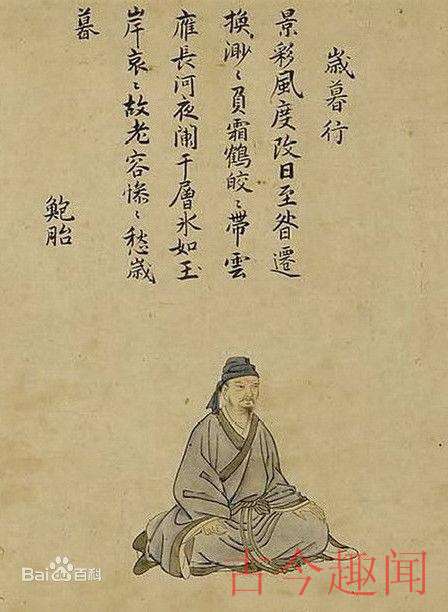 歳暮行
景彩風度改日至昝遷
換渺々負霜鶴皎々帶雲
雁長河夜闌干層氷如玉
岸哀々故老容惨々愁歳
暮
鮑胎
Bai百科
古今趣闻